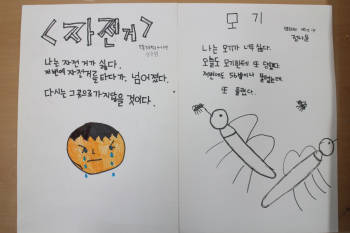 <자전거>
나는 자전거가 싫다.
저번에 자전거를 타다가, 넘어졌다.
다시는 그곳으로 가지않을 것이다.
모기
나는 모기가 너무 싫다.
오늘도 모기한테 또 당했다.
저번에도 5방이나 물렸는데
또 물렸다.